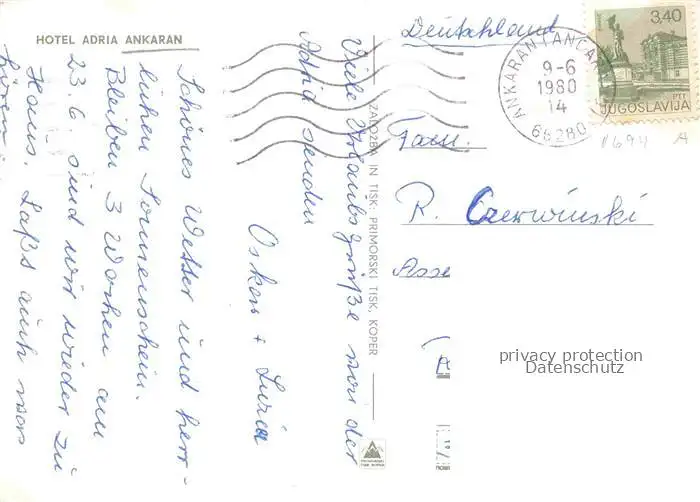 HOTEL ADRIA ANKARAN
Viele Urlaubsgrüße von der
Adria senden
Oskar + Luzia
Schönes Wetter und herr-
lichen Sonnenschein.
Bleiben 3 Wochen am
23.6. sind wir wieder zu
Haus. Laßt auch von
hören
ZALOŽBA IN TISK: PRIMORSKI TISK, KOPER
Deutschland
ANKARAN ANCARANO
9-6
1980
14
66280
3,40
PTT
JUGOSLAVIJA
1694 A
Fam.
R. Czerwinski
Asse
privacy protection
Datenschutz